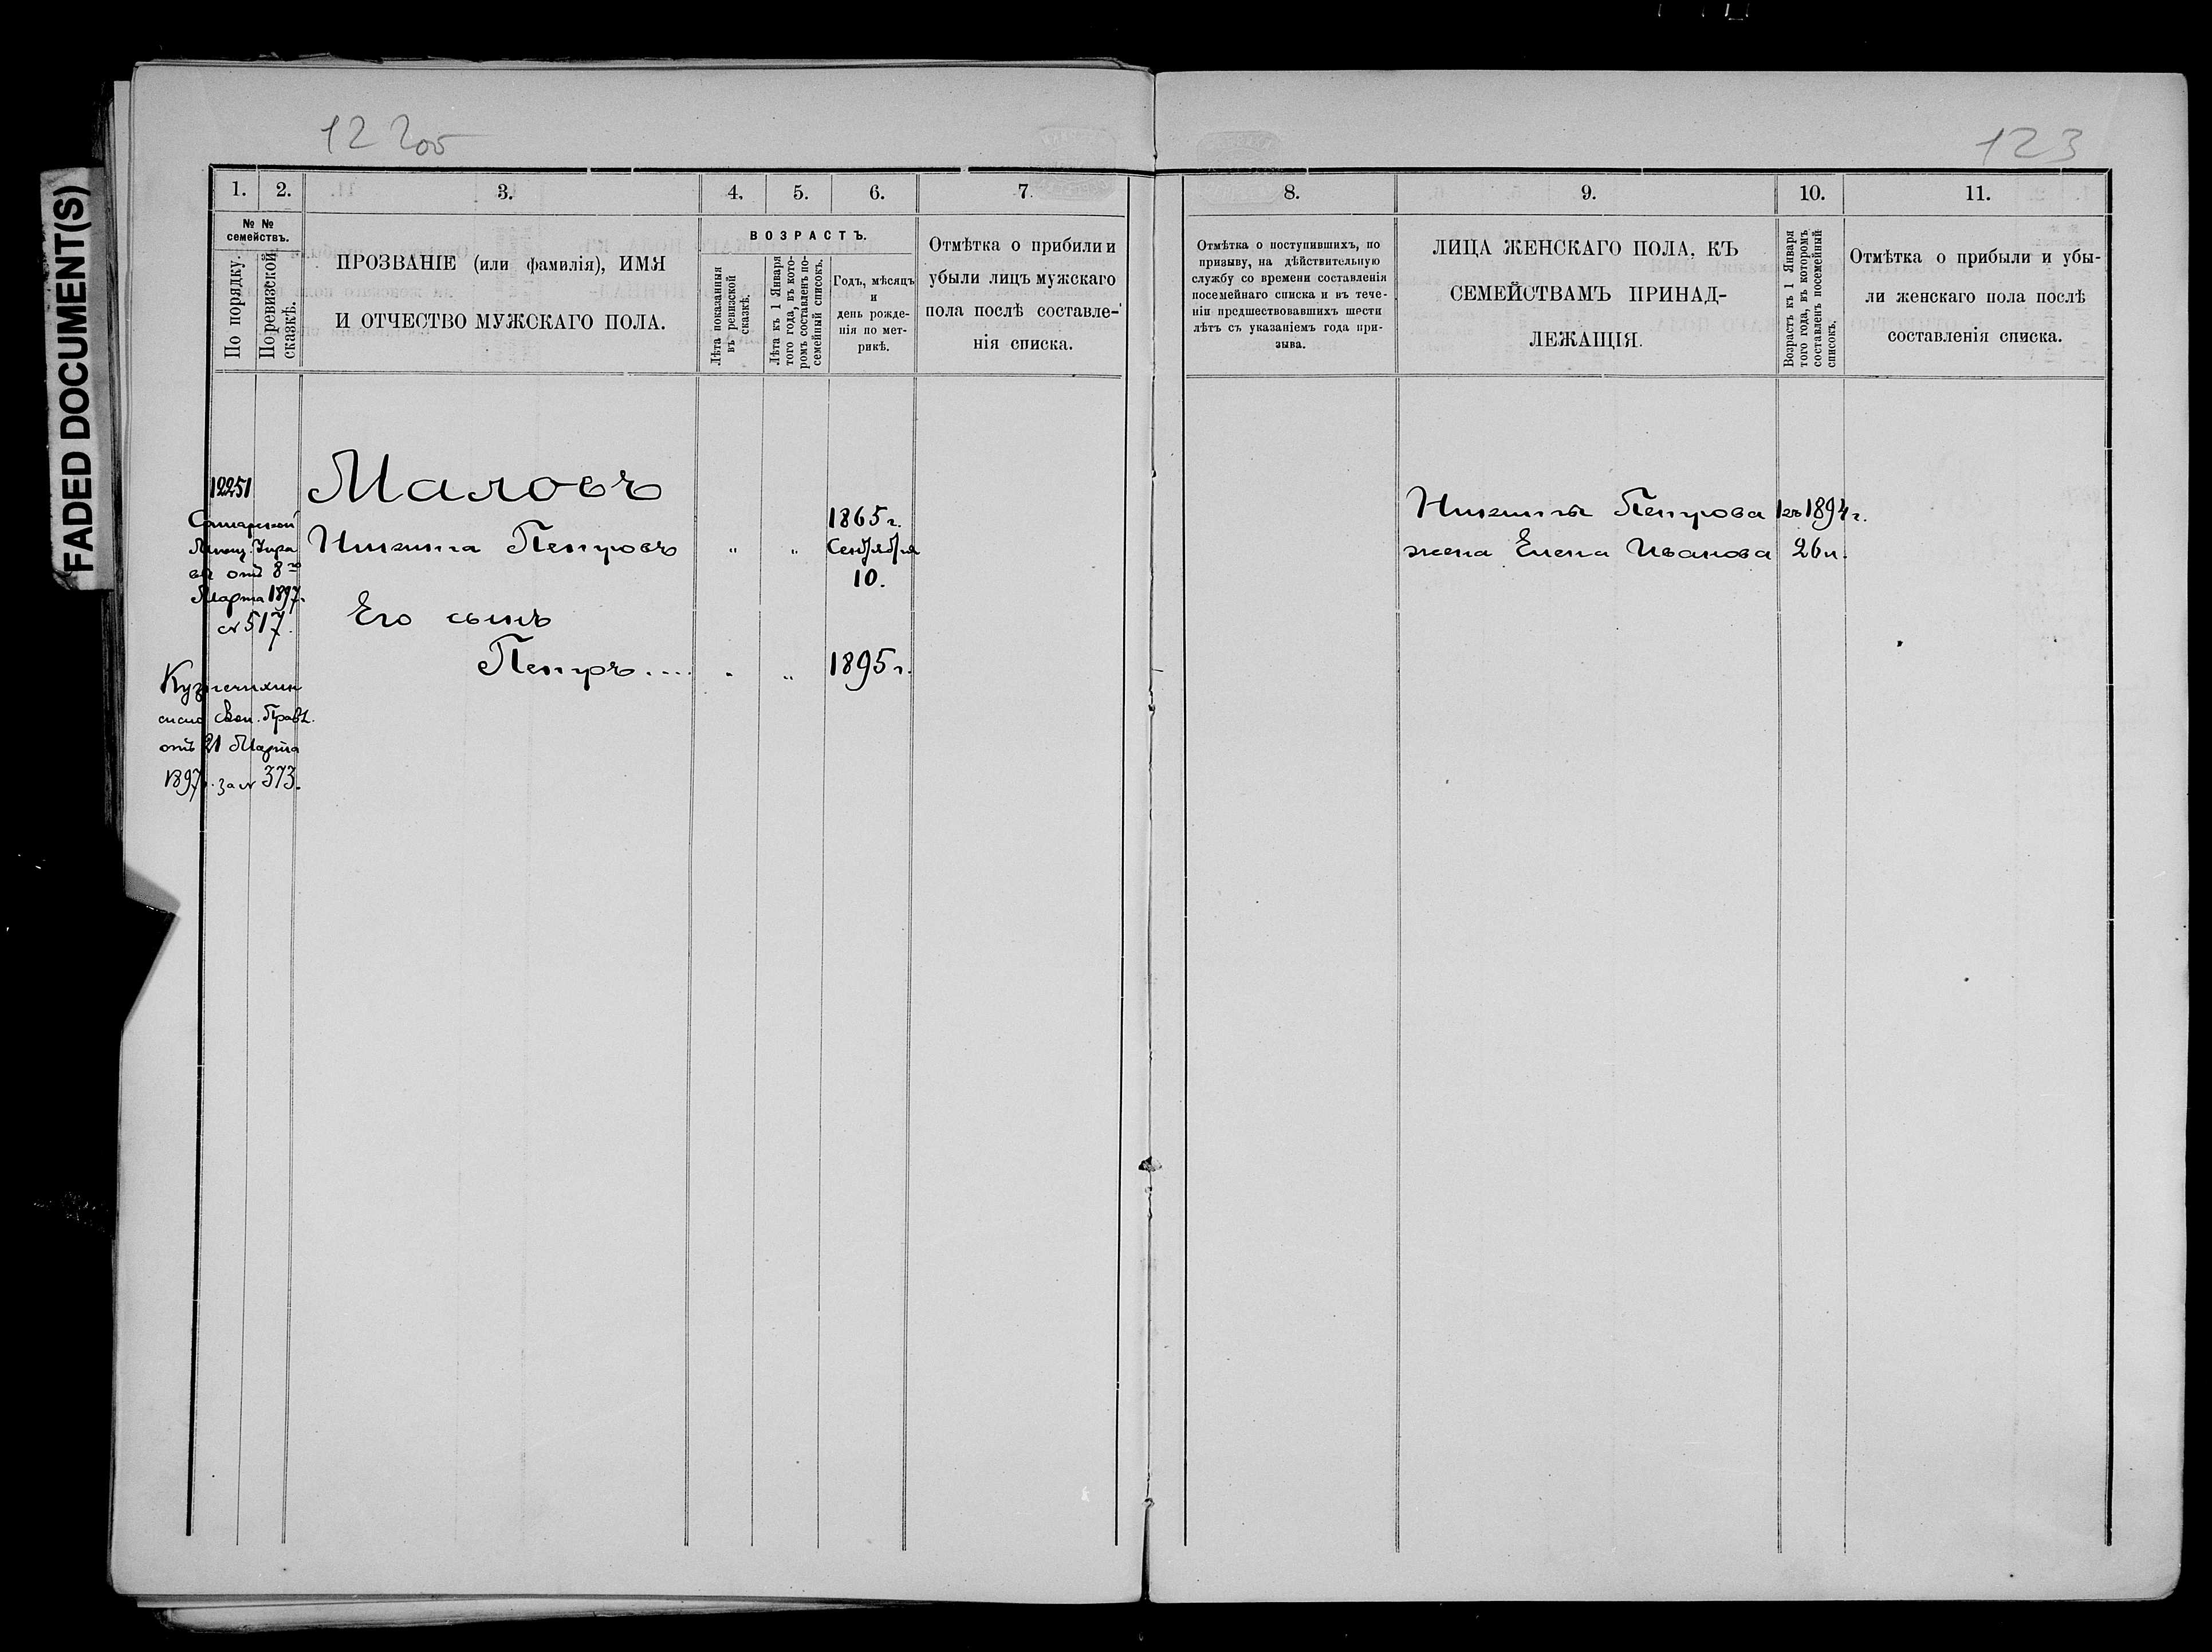 FADED DOCUMENT(S)
12 200
123
1. 2. 3. 4. 5. 6. 7.
№ №
семействъ.
По порядку.
По ревизской
сказкѣ.
ПРОЗВАНІЕ (или фамилія), ИМЯ
И ОТЧЕСТВО МУЖСКАГО ПОЛА.
ВОЗРАСТЪ.
Лѣта показанныя
въ ревизской
сказкѣ.
Лѣта къ 1 Января
того года, въ кото-
ромъ составленъ по-
семейный списокъ.
Годъ, мѣсяцъ
и
день рожде-
нія по мет-
рикѣ.
Отмѣтка о прибыли и
убыли лицъ мужскаго
пола послѣ составле-
нія списка.
8. 9. 10. 11.
Отмѣтка о поступившихъ, по
призыву, на дѣйствительную
службу со времени составленія
посемейнаго списка и въ тече-
ніи предшествовавшихъ шести
лѣтъ съ указаніемъ года при-
зыва.
ЛИЦА ЖЕНСКАГО ПОЛА, КЪ
СЕМЕЙСТВАМЪ ПРИНАД-
ЛЕЖАЩІЯ.
Возрастъ къ 1 Января
того года, въ которомъ
составленъ посемейный
списокъ.
Отмѣтка о прибыли и убы-
ли женскаго пола послѣ
составленія списка.
12251
Самарской
Мѣщ. Упра
вы отъ 8го
Марта 1897г.
№ 517.
отъ 21 Марта
1897г. за № 373.
Маловъ
Никита Петровъ " " 1865г. Сентября 10.
Его сынъ
Петръ.... " " 1895г.
Никиты Петрова къ 1894г.
жена Елена Иванова 26л.